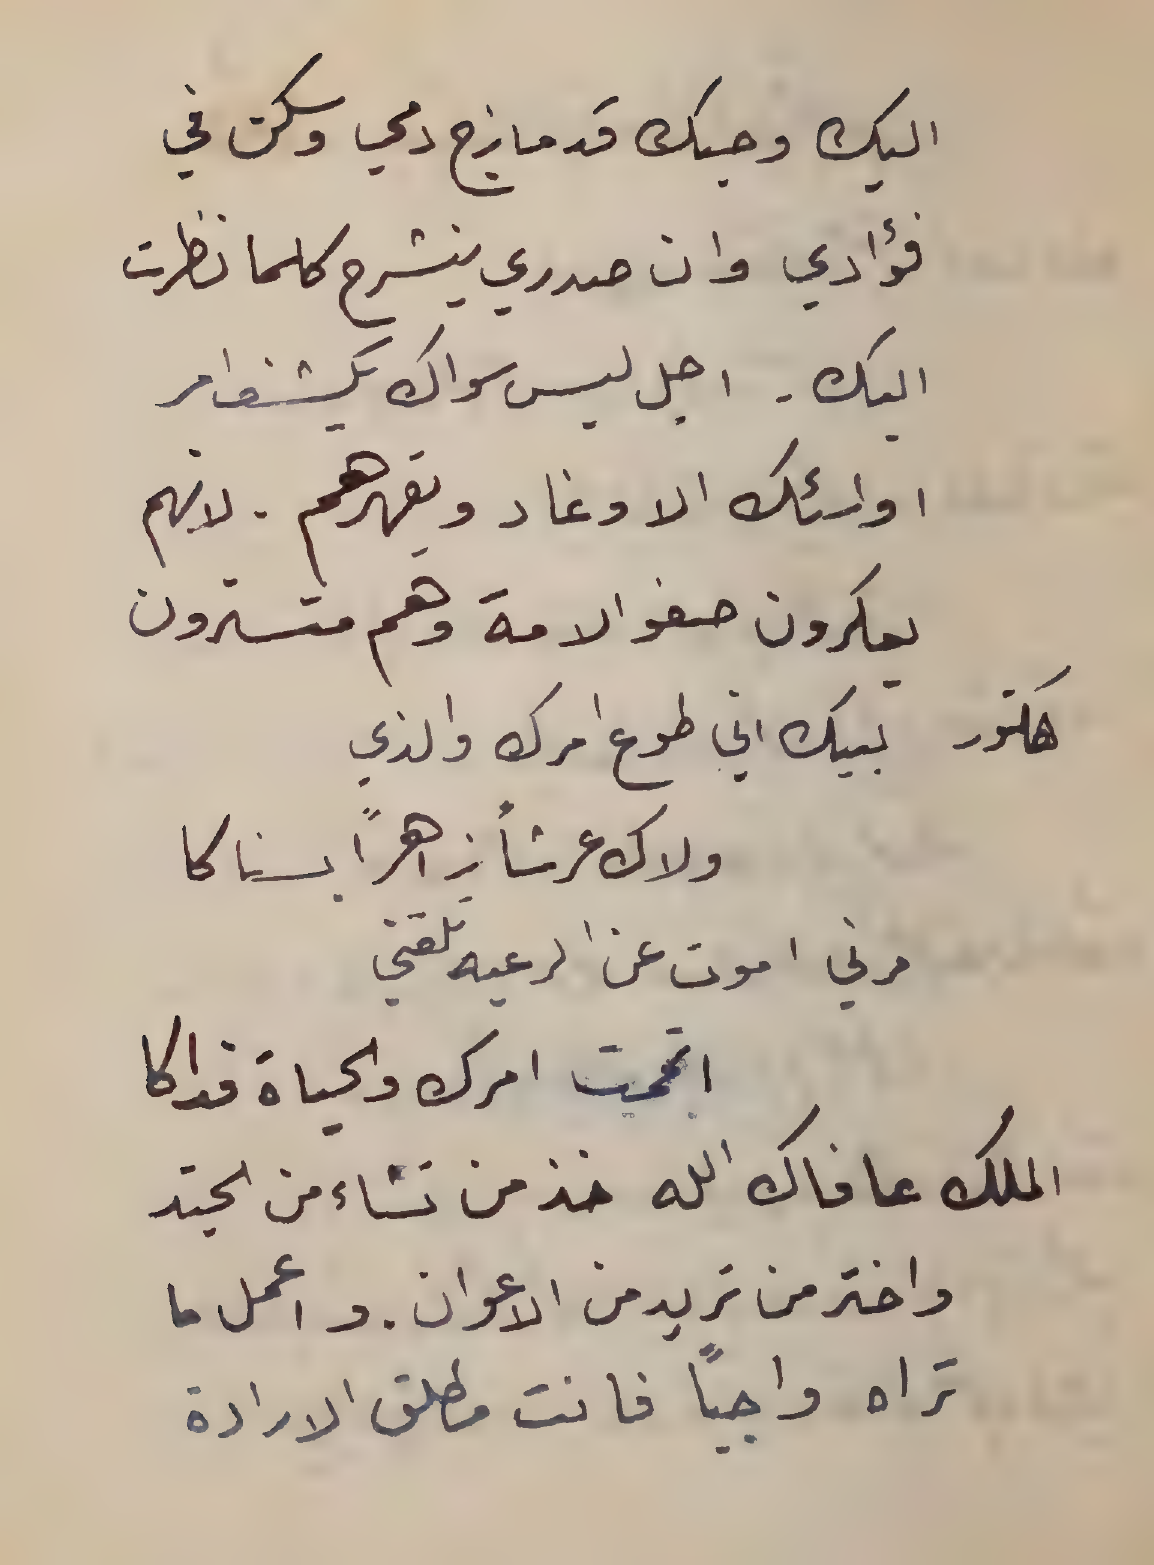 اليك وحبك قد مازج دمي وسكن في
فؤادي وان صدري ينشرح كلما نظرت
اليك . اجل ليس سواك يكشف امر
اولئك الاوغاد ويقهرهم . لانهم
يعكرون صفو الامة وهم متسترون
هكتور لبيك اني طوع امرك والذي
ولاك عرشاً زاهراً بسناكا
مرني اموت عن الرعيه تلقني
اتممت امرك والحياة فداكا
الملك عافاك الله خذ من تشاء من الجند
واختر من تريد من الاعوان . واعمل ما
تراه واجباً فانت مطلق الارادة